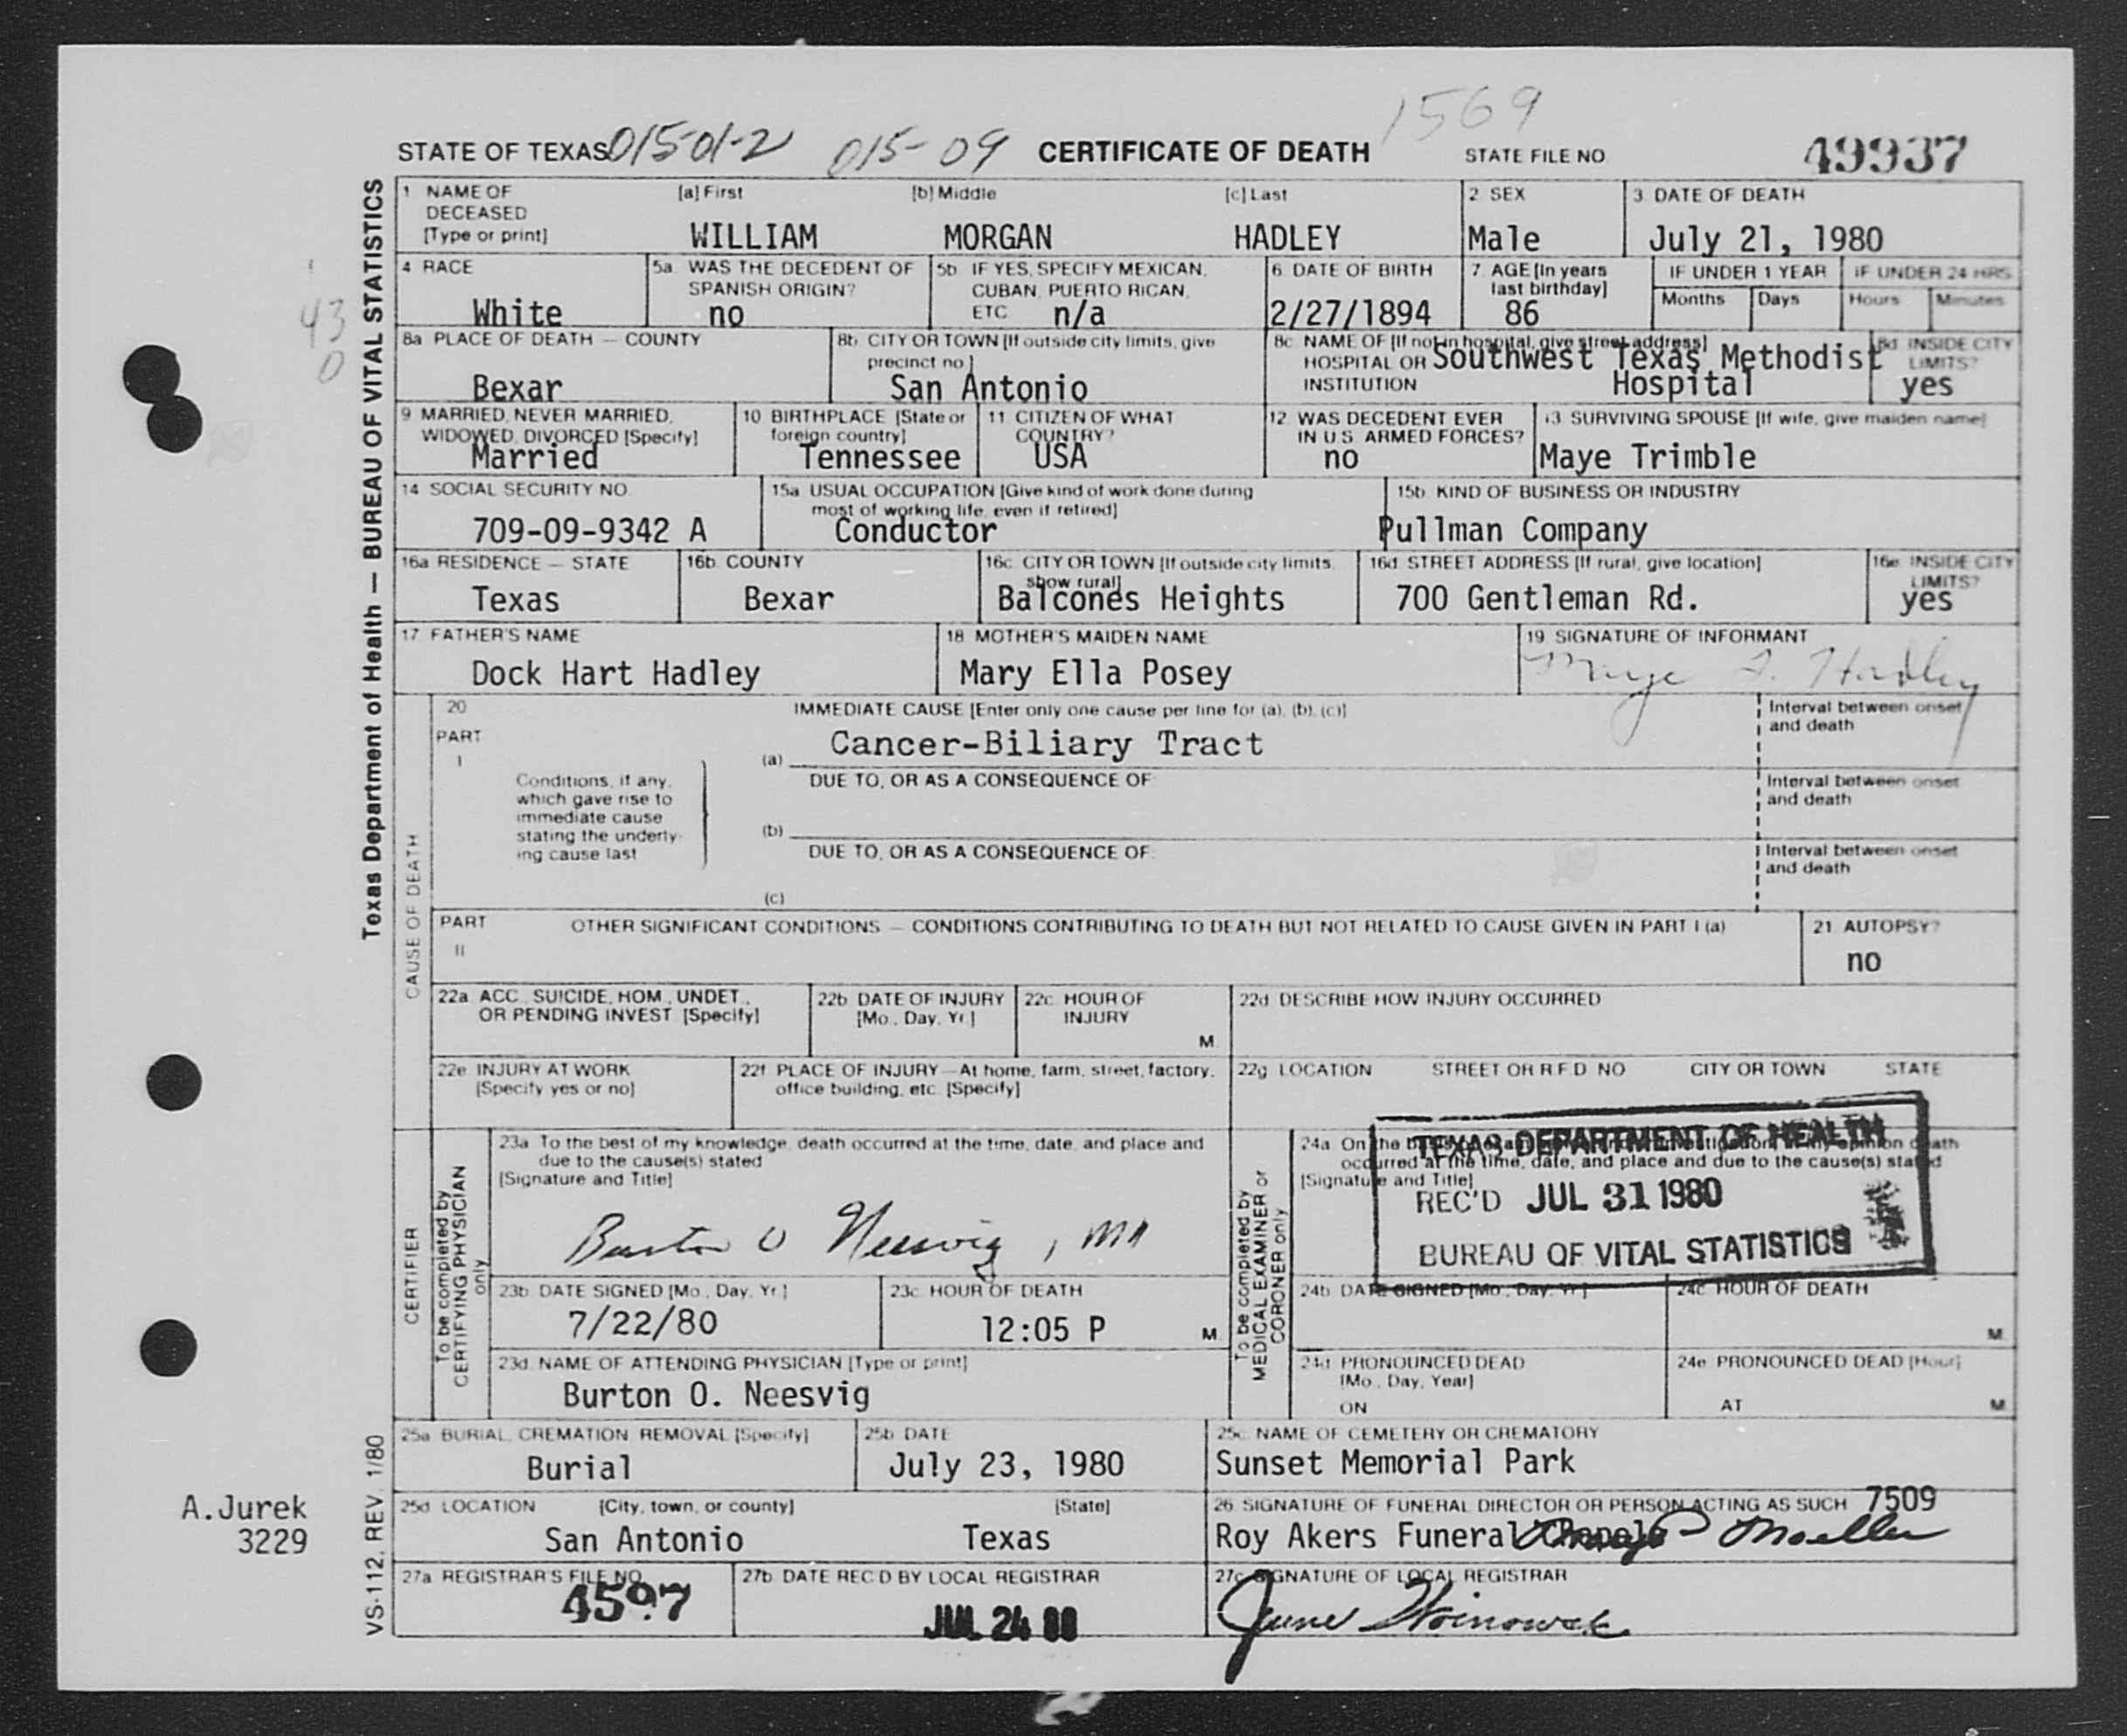 1569
STATE OF TEXAS 015-01-2 015-09 CERTIFICATE OF DEATH STATE FILE NO. 49937
Texas Department of Health — BUREAU OF VITAL STATISTICS
43
0
1 NAME OF DECEASED [Type or print] [a] First [b] Middle [c] Last 2 SEX 3 DATE OF DEATH
WILLIAM MORGAN HADLEY Male July 21, 1980
4 RACE 5a WAS THE DECEDENT OF SPANISH ORIGIN? 5b IF YES, SPECIFY MEXICAN, CUBAN, PUERTO RICAN, ETC 6 DATE OF BIRTH 7 AGE [In years last birthday] IF UNDER 1 YEAR IF UNDER 24 HRS
Months Days Hours Minutes
White no n/a 2/27/1894 86
8a PLACE OF DEATH — COUNTY 8b CITY OR TOWN [If outside city limits, give precinct no.] 8c NAME OF [If not in hospital, give street address] HOSPITAL OR INSTITUTION 8d INSIDE CITY LIMITS?
Bexar San Antonio Southwest Texas Methodist Hospital yes
9 MARRIED, NEVER MARRIED, WIDOWED, DIVORCED [Specify] 10 BIRTHPLACE [State or foreign country] 11 CITIZEN OF WHAT COUNTRY? 12 WAS DECEDENT EVER IN U.S. ARMED FORCES? 13 SURVIVING SPOUSE [If wife, give maiden name]
Married Tennessee USA no Maye Trimble
14 SOCIAL SECURITY NO. 15a USUAL OCCUPATION [Give kind of work done during most of working life, even if retired] 15b KIND OF BUSINESS OR INDUSTRY
709-09-9342 A Conductor Pullman Company
16a RESIDENCE — STATE 16b COUNTY 16c CITY OR TOWN [If outside city limits, show rural] 16d STREET ADDRESS [If rural, give location] 16e INSIDE CITY LIMITS?
Texas Bexar Balcones Heights 700 Gentleman Rd. yes
17 FATHER'S NAME 18 MOTHER'S MAIDEN NAME 19 SIGNATURE OF INFORMANT
Dock Hart Hadley Mary Ella Posey Maye T. Hadley
CAUSE OF DEATH
20 IMMEDIATE CAUSE [Enter only one cause per line for (a), (b), (c)] Interval between onset and death
PART I
(a) Cancer-Biliary Tract
Conditions, if any, which gave rise to immediate cause stating the underlying cause last
DUE TO, OR AS A CONSEQUENCE OF: Interval between onset and death
(b)
DUE TO, OR AS A CONSEQUENCE OF: Interval between onset and death
(c)
PART II OTHER SIGNIFICANT CONDITIONS — CONDITIONS CONTRIBUTING TO DEATH BUT NOT RELATED TO CAUSE GIVEN IN PART I (a) 21 AUTOPSY?
no
22a ACC., SUICIDE, HOM., UNDET., OR PENDING INVEST. [Specify] 22b DATE OF INJURY [Mo., Day, Yr.] 22c HOUR OF INJURY M. 22d DESCRIBE HOW INJURY OCCURRED
22e INJURY AT WORK [Specify yes or no] 22f PLACE OF INJURY—At home, farm, street, factory, office building, etc. [Specify] 22g LOCATION STREET OR R.F.D. NO. CITY OR TOWN STATE
CERTIFIER
To be completed by CERTIFYING PHYSICIAN only
23a To the best of my knowledge, death occurred at the time, date, and place and due to the cause(s) stated
[Signature and Title]
Burton O Neesvig, MD
23b DATE SIGNED [Mo., Day, Yr.] 23c HOUR OF DEATH
7/22/80 12:05 P M.
23d NAME OF ATTENDING PHYSICIAN [Type or print]
Burton O. Neesvig
To be completed by MEDICAL EXAMINER or CORONER only
24a On the death occurred at the time, date, and place and due to the cause(s) stated
[Signature and Title]
TEXAS DEPARTMENT OF HEALTH
REC'D JUL 31 1980
BUREAU OF VITAL STATISTICS
24b DATE SIGNED [Mo., Day, Yr.] 24c HOUR OF DEATH M.
24d PRONOUNCED DEAD [Mo., Day, Year] ON 24e PRONOUNCED DEAD [Hour] AT M
25a BURIAL, CREMATION, REMOVAL [Specify] 25b DATE 25c NAME OF CEMETERY OR CREMATORY
Burial July 23, 1980 Sunset Memorial Park
25d LOCATION [City, town, or county] [State] 26 SIGNATURE OF FUNERAL DIRECTOR OR PERSON ACTING AS SUCH 7509
San Antonio Texas Roy Akers Funeral Chapels Moeller
27a REGISTRAR'S FILE NO. 27b DATE REC'D BY LOCAL REGISTRAR 27c SIGNATURE OF LOCAL REGISTRAR
4597 JUL 24 80 June
A.Jurek
3229
VS-112, REV. 1/80